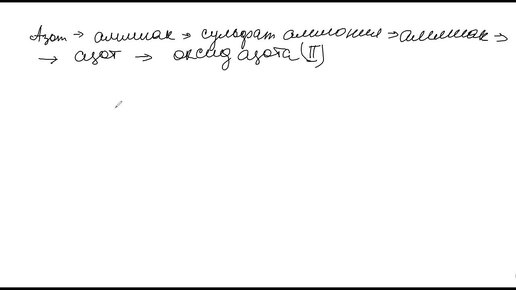 Азот → аммиак → сульфат аммония → аммиак →
→ азот → оксид азота (II)